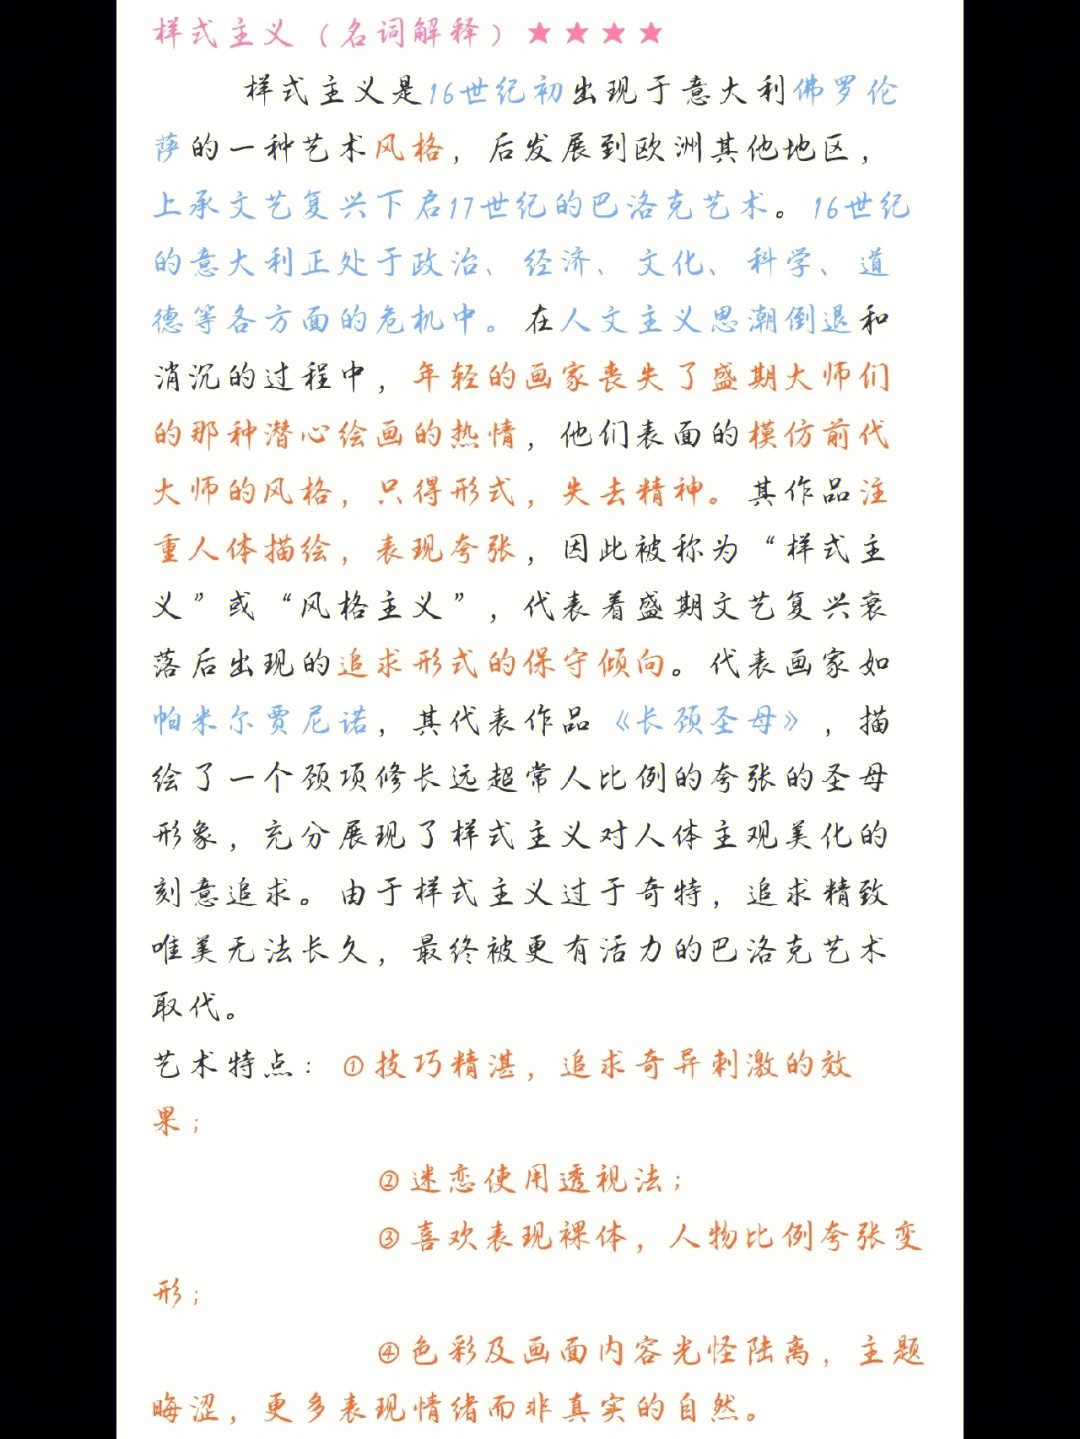 样式主义（名词解释）★★★★
样式主义是16世纪初出现于意大利佛罗伦
萨的一种艺术风格，后发展到欧洲其他地区，
上承文艺复兴下启17世纪的巴洛克艺术。16世纪
的意大利正处于政治、经济、文化、科学、道
德等各方面的危机中。在人文主义思潮倒退和
消沉的过程中，年轻的画家丧失了盛期大师们
的那种潜心绘画的热情，他们表面的模仿前代
大师的风格，只得形式，失去精神。其作品注
重人体描绘，表现夸张，因此被称为“样式主
义”或“风格主义”，代表着盛期文艺复兴衰
落后出现的追求形式的保守倾向。代表画家如
帕米尔贾尼诺，其代表作品《长颈圣母》，描
绘了一个颈项修长远超常人比例的夸张的圣母
形象，充分展现了样式主义对人体主观美化的
刻意追求。由于样式主义过于奇特，追求精致
唯美无法长久，最终被更有活力的巴洛克艺术
取代。
艺术特点：①技巧精湛，追求奇异刺激的效
果；
②迷恋使用透视法；
③喜欢表现裸体，人物比例夸张变
形；
④色彩及画面内容光怪陆离，主题
晦涩，更多表现情绪而非真实的自然。